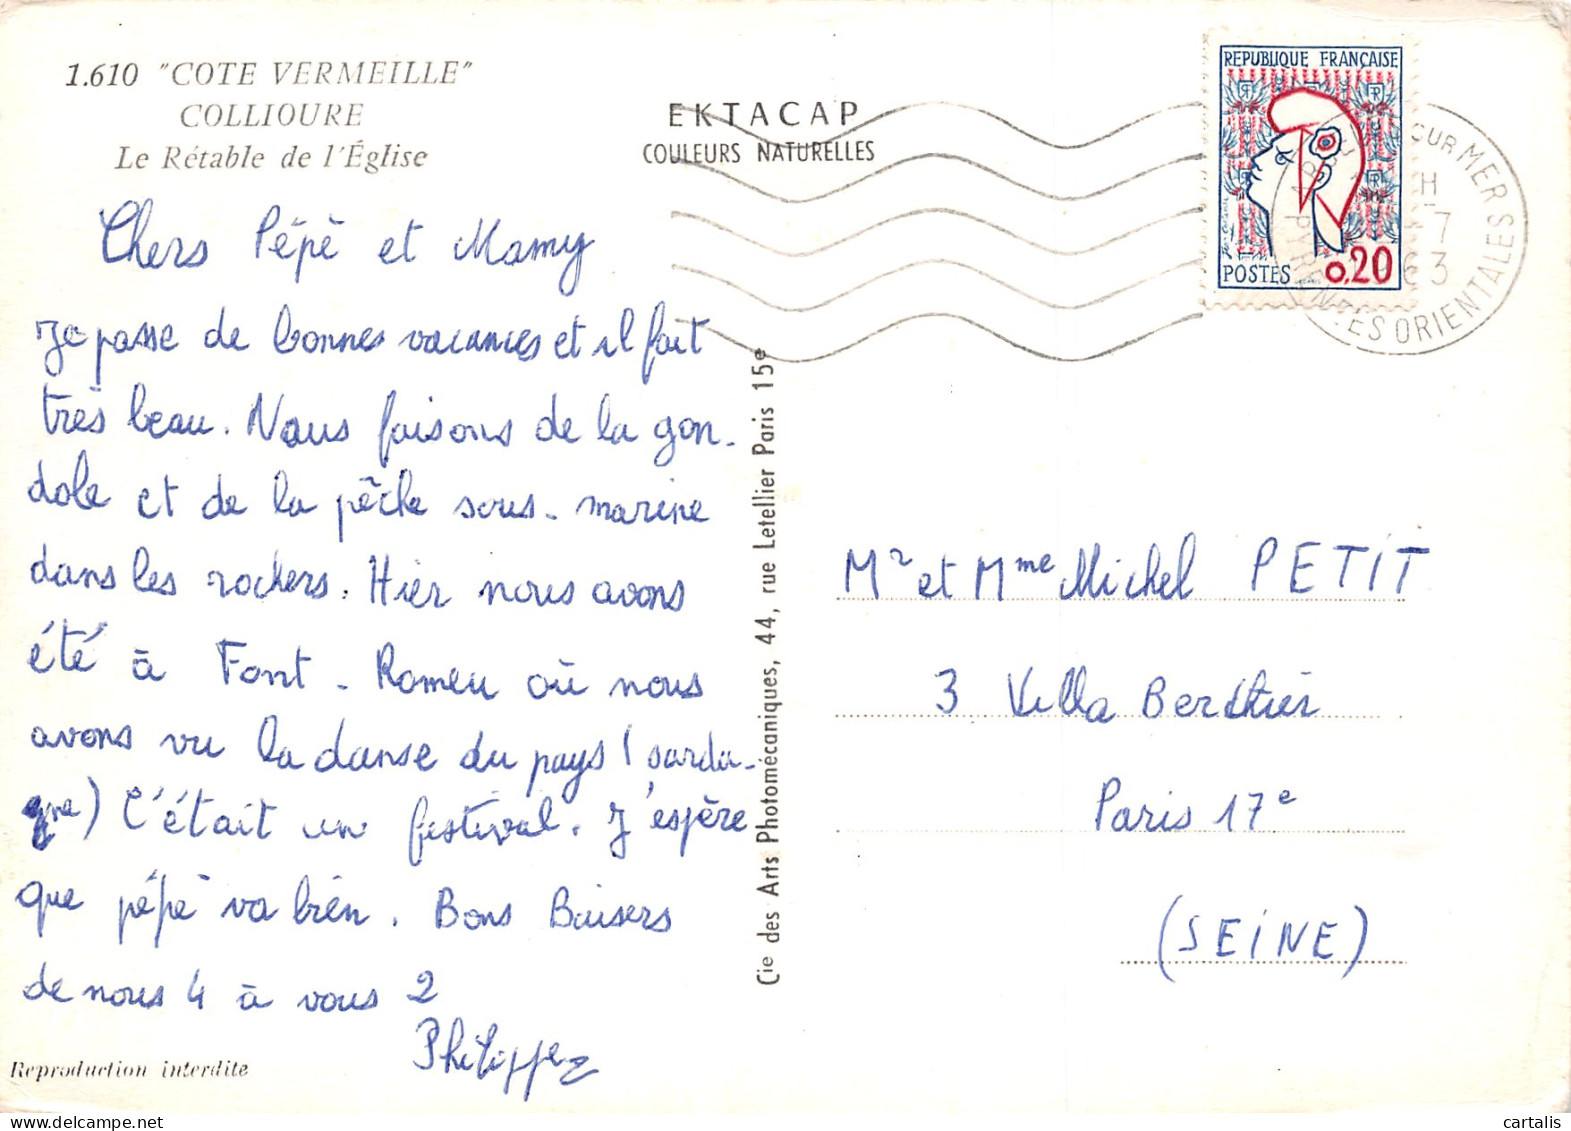 1.610 "COTE VERMEILLE"
COLLIOURE
Le Rétable de l'Église
EKTACAP
COULEURS NATURELLES
REPUBLIQUE FRANÇAISE
POSTES 0,20
SUR MER
H
7
1963
PYRENEES ORIENTALES
Chers Pépè et Mamy
Je passe de bonnes vacances et il fait
très beau. Nous faisons de la gon-
dole et de la pêche sous-marine
dans les rochers. Hier nous avons
été à Font-Romeu où nous
avons vu la danse du pays (sarda-
gne) C'était un festival. J'espère
que pépè va bien. Bons Baisers
de nous 4 à vous 2
Philippe
Reproduction interdite
Cie des Arts Photomécaniques, 44, rue Letellier Paris 15e
Mr et Mme Michel PETIT
3 Villa Berthier
Paris 17e
(SEINE)
cartalis